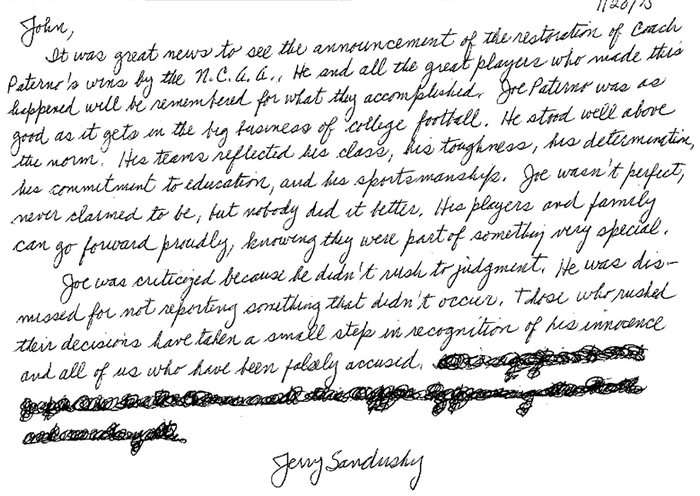 1/20/15
John,
It was great news to see the announcement of the restoration of Coach
Paterno's wins by the N.C.A.A.. He and all the great players who made this
happened will be remembered for what they accomplished. Joe Paterno was as
good as it gets in the big business of college football. He stood well above
the norm. His teams reflected his class, his toughness, his determination,
his commitment to education, and his sportsmanship. Joe wasn't perfect,
never claimed to be, but nobody did it better. His players and family
can go forward proudly, knowing they were part of something very special.
Joe was criticized because he didn't rush to judgment. He was dis-
missed for not reporting something that didn't occur. Those who rushed
their decisions have taken a small step in recognition of his innocence
and all of us who have been falsely accused.
Jerry Sandusky